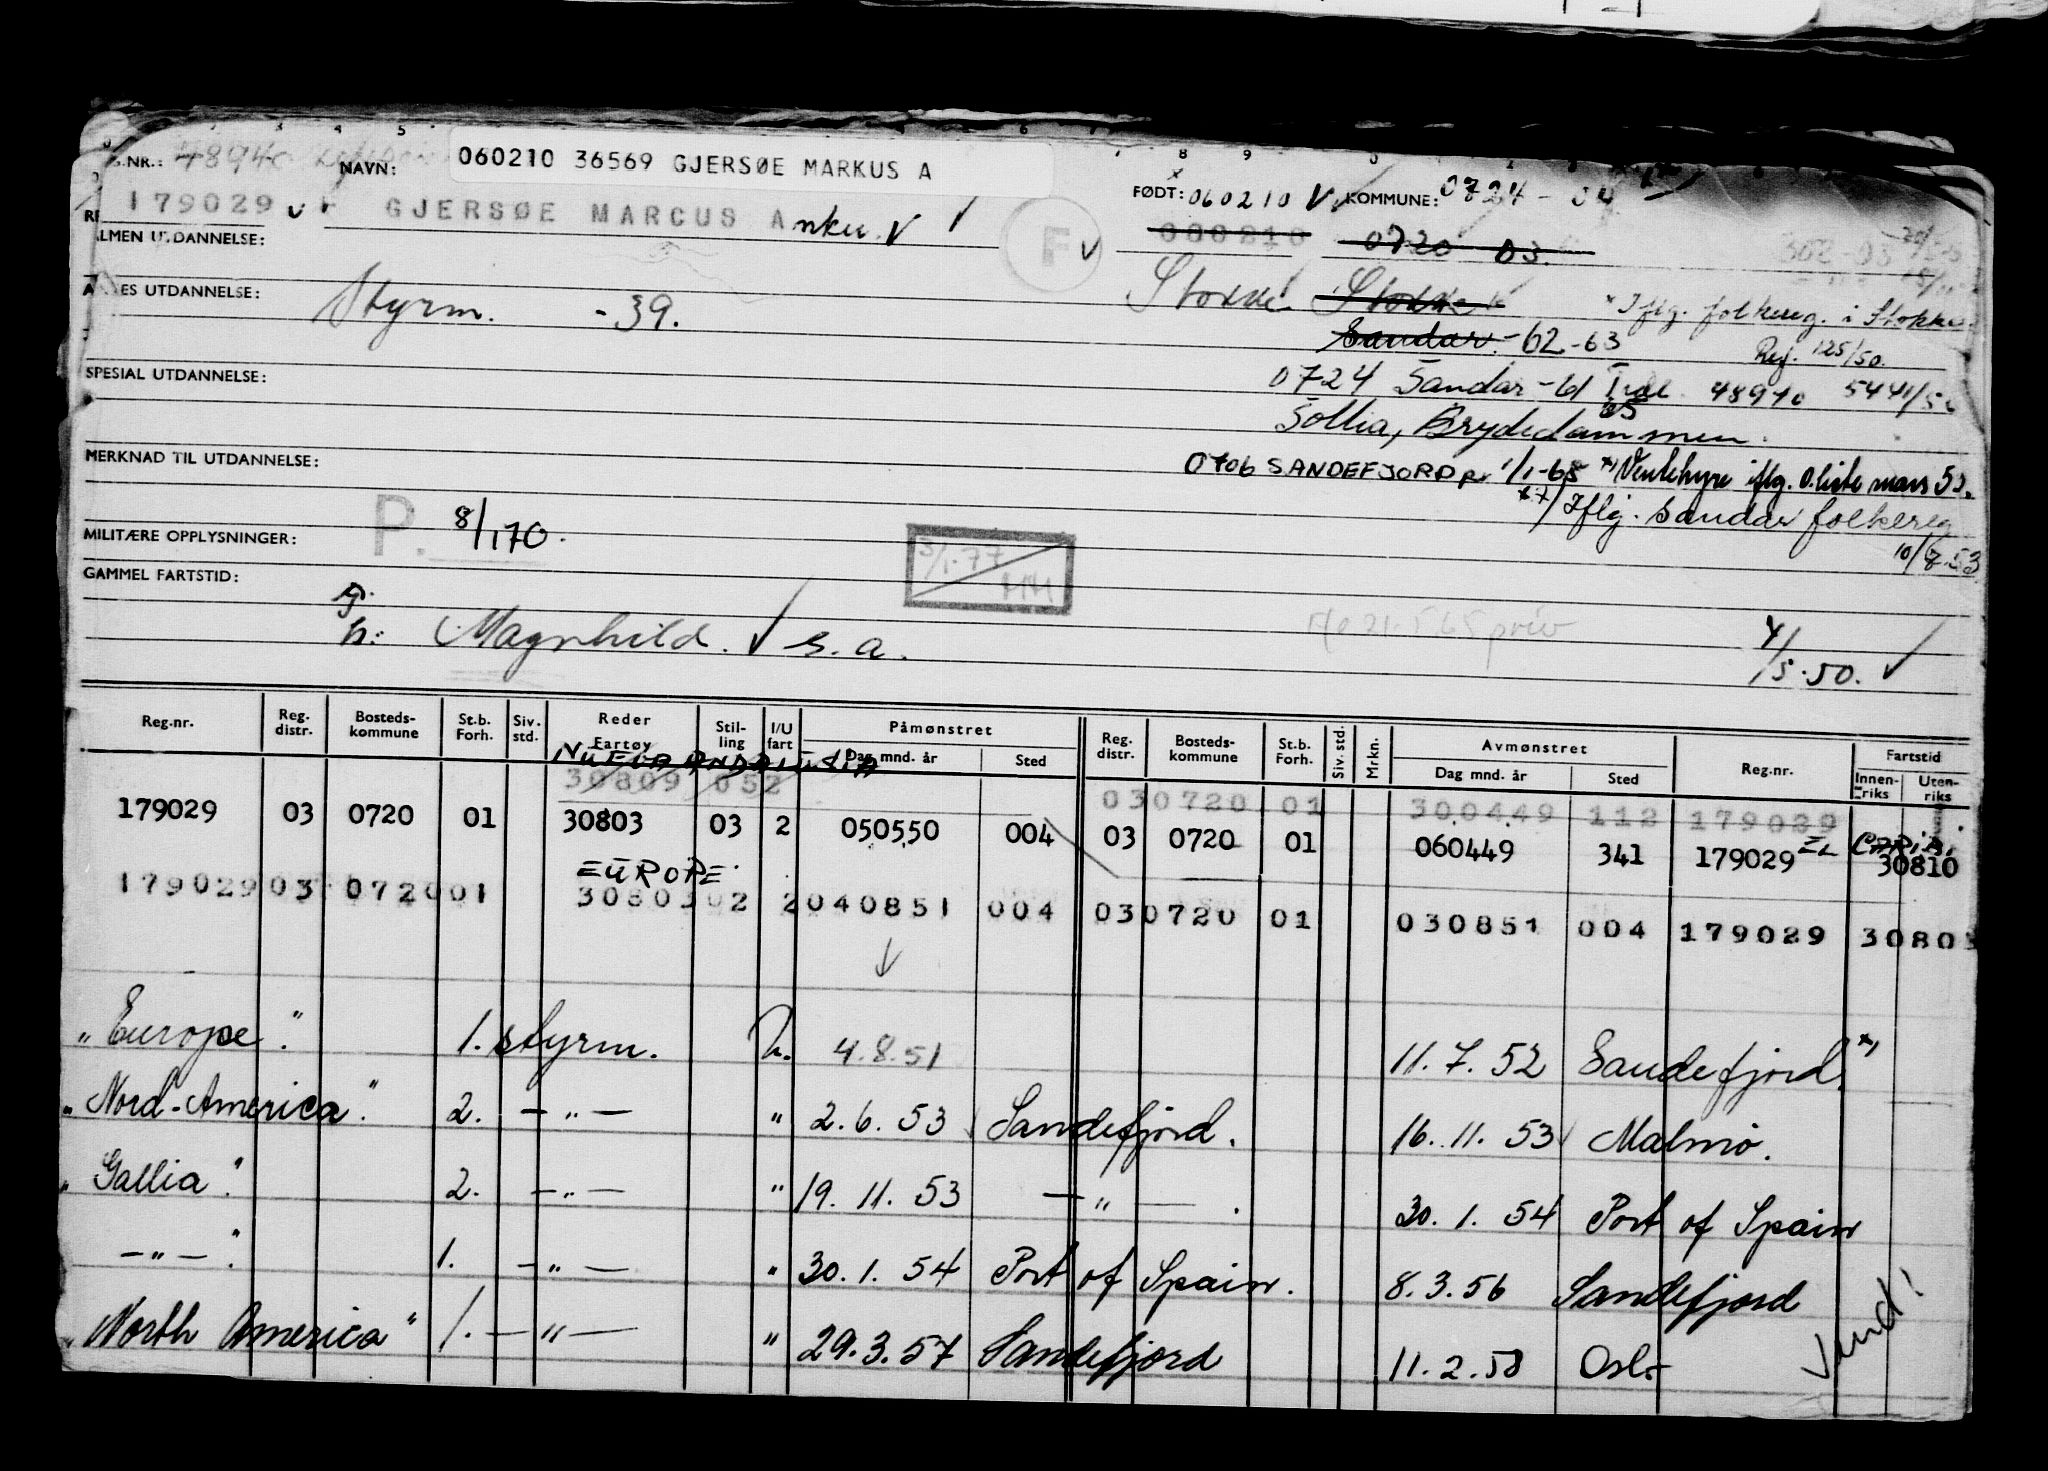 S.NR.: 48940 NAVN: 060210 36569 GJERSØE MARKUS A FØDT: 060210 KOMMUNE: 0724 - 04
179029 GJERSØE MARCUS A nker F 000210 0720 03.
ALMEN UTDANNELSE:
Stokke Stokke Iflg. folkereg. i Stokke
ANNES UTDANNELSE: Styrm. - 39.
Sandar - 62-63 Ref. 125/50.
SPESIAL UTDANNELSE: 0724 Sandar - 48940
Sollia, Brydedammen.
MERKNAD TIL UTDANNELSE: 0706 SANDEFJORD 1/1-65 *) Ventehyre iflg. O.liste mars 53.
**) Iflg. Sandar folkereg
MILITÆRE OPPLYSNINGER: P. 8/1 70. 3/1-77 10/8.53
GAMMEL FARTSTID:
h: Magnhild. s.a. 4/5.50.
Reg.nr. Reg. distr. Bosteds- kommune St.b. Forh. Siv. std. Reder Fartøy Stil- ling I/U fart Påmønstret Dag mnd. år Sted Reg. distr. Bosteds- kommune St.b. Forh. Siv. std. Mrkn. Avmønstret Dag mnd. år Sted Reg.nr. Fartstid Innen- riks Uten- riks
30809 052 030720 01 300449 112 179029
179029 03 0720 01 30803 03 2 050550 004 03 0720 01 060449 341 179029 30810
EUROPE
179029 03 0720 01 30803 02 2 040851 004 03 0720 01 030851 004 179029 3080
"Europe". 1. styrm. 4.8.51 11.7.52 Sandefjord. *)
"Nord-America". 2. — " — " 2.6.53 Sandefjord. 16.11.53 Malmö.
"Gallia". 2. — " — " 19.11.53 — " — . 30.1.54 Port of Spain
— " — ". 1. — " — " 30.1.54 Port of Spain. 8.3.56 Sandefjord
"North America" 1. — " — " 29.3.57 Sandefjord 11.2.58 Oslo
Vend!